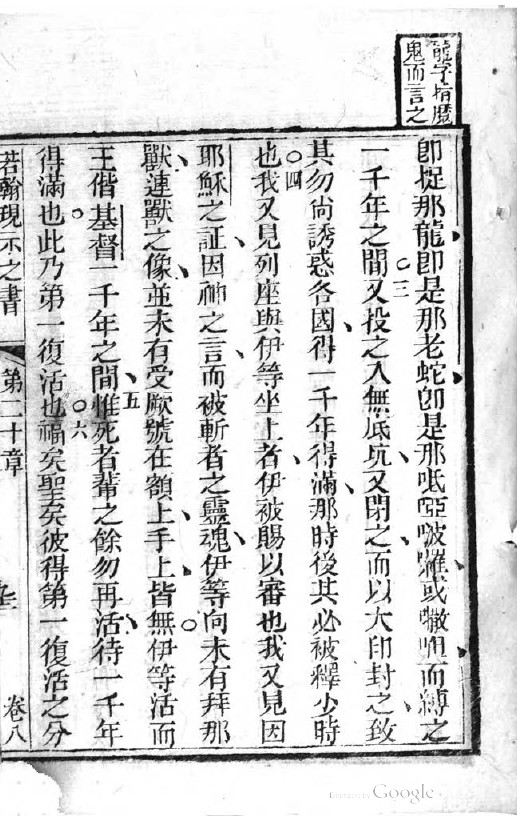 龍字指魔
鬼而言之
即捉那龍即是那老蛇即是那呧啞啵囉或㘔呾而縛之
一千年之間○三又投之入無底坑又閉之而以大印封之致
其勿尚誘惑各國得一千年得滿那時後其必被釋少時
也○四我又見列座與伊等坐上者伊被賜以審也我又見因
耶穌之証因神之言而被斬者之靈魂伊等向未有拜那
獸連獸之像並未有受厥號在額上手上皆無伊等活而
王偕基督一千年之間○五惟死者輩之餘勿再活待一千年
得滿也此乃第一復活也○六福矣聖矣彼得第一復活之分
若翰現示之書 第二十章 卷八
Digitized by Google